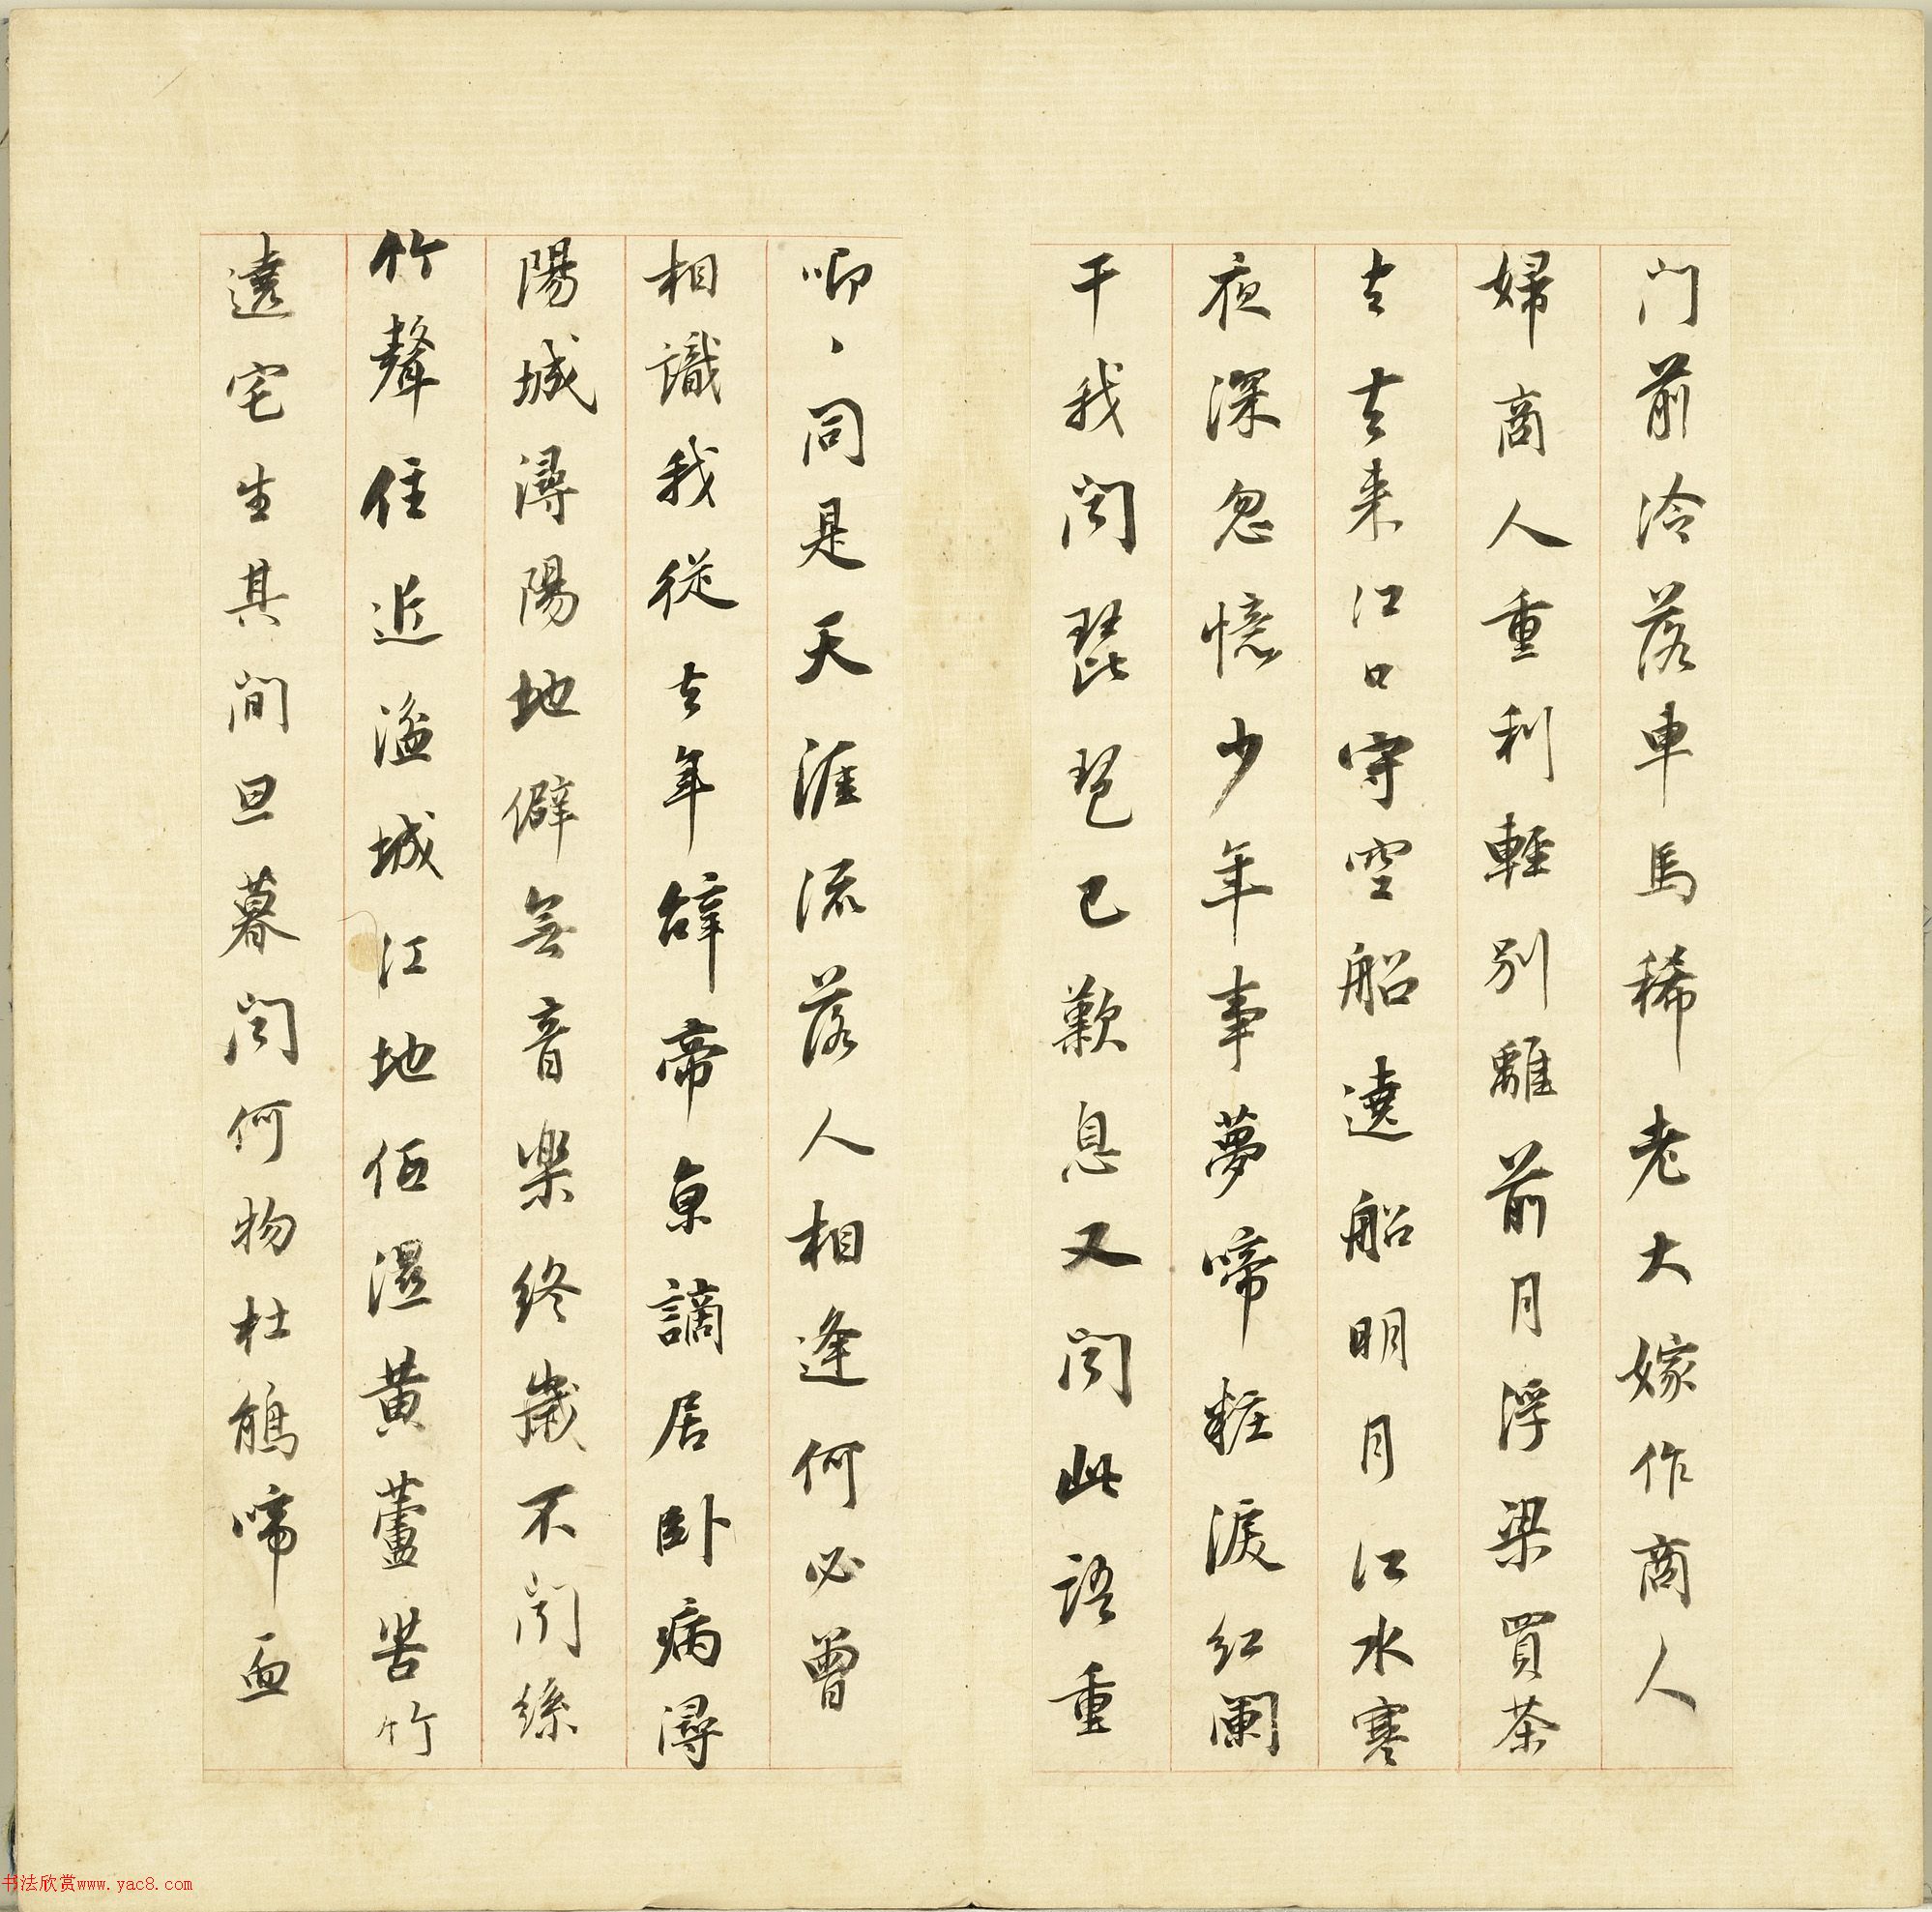 门前冷落車馬稀老大嫁作商人
婦商人重利輕別離前月浮梁買茶
去去来江口守空船遶船明月江水寒
夜深忽憶少年事夢啼粧淚红闌
干我闻琵琶已歎息又闻此語重
唧、同是天涯流落人相逢何必曾
相識我從去年辞帝京謫居卧病潯
陽城潯陽地僻無音樂終歲不闻絲
竹聲住近湓城江地伍濕黄蘆苦竹
遶宅生其间旦暮闻何物杜鵑啼血
书法欣赏www.yac8.com